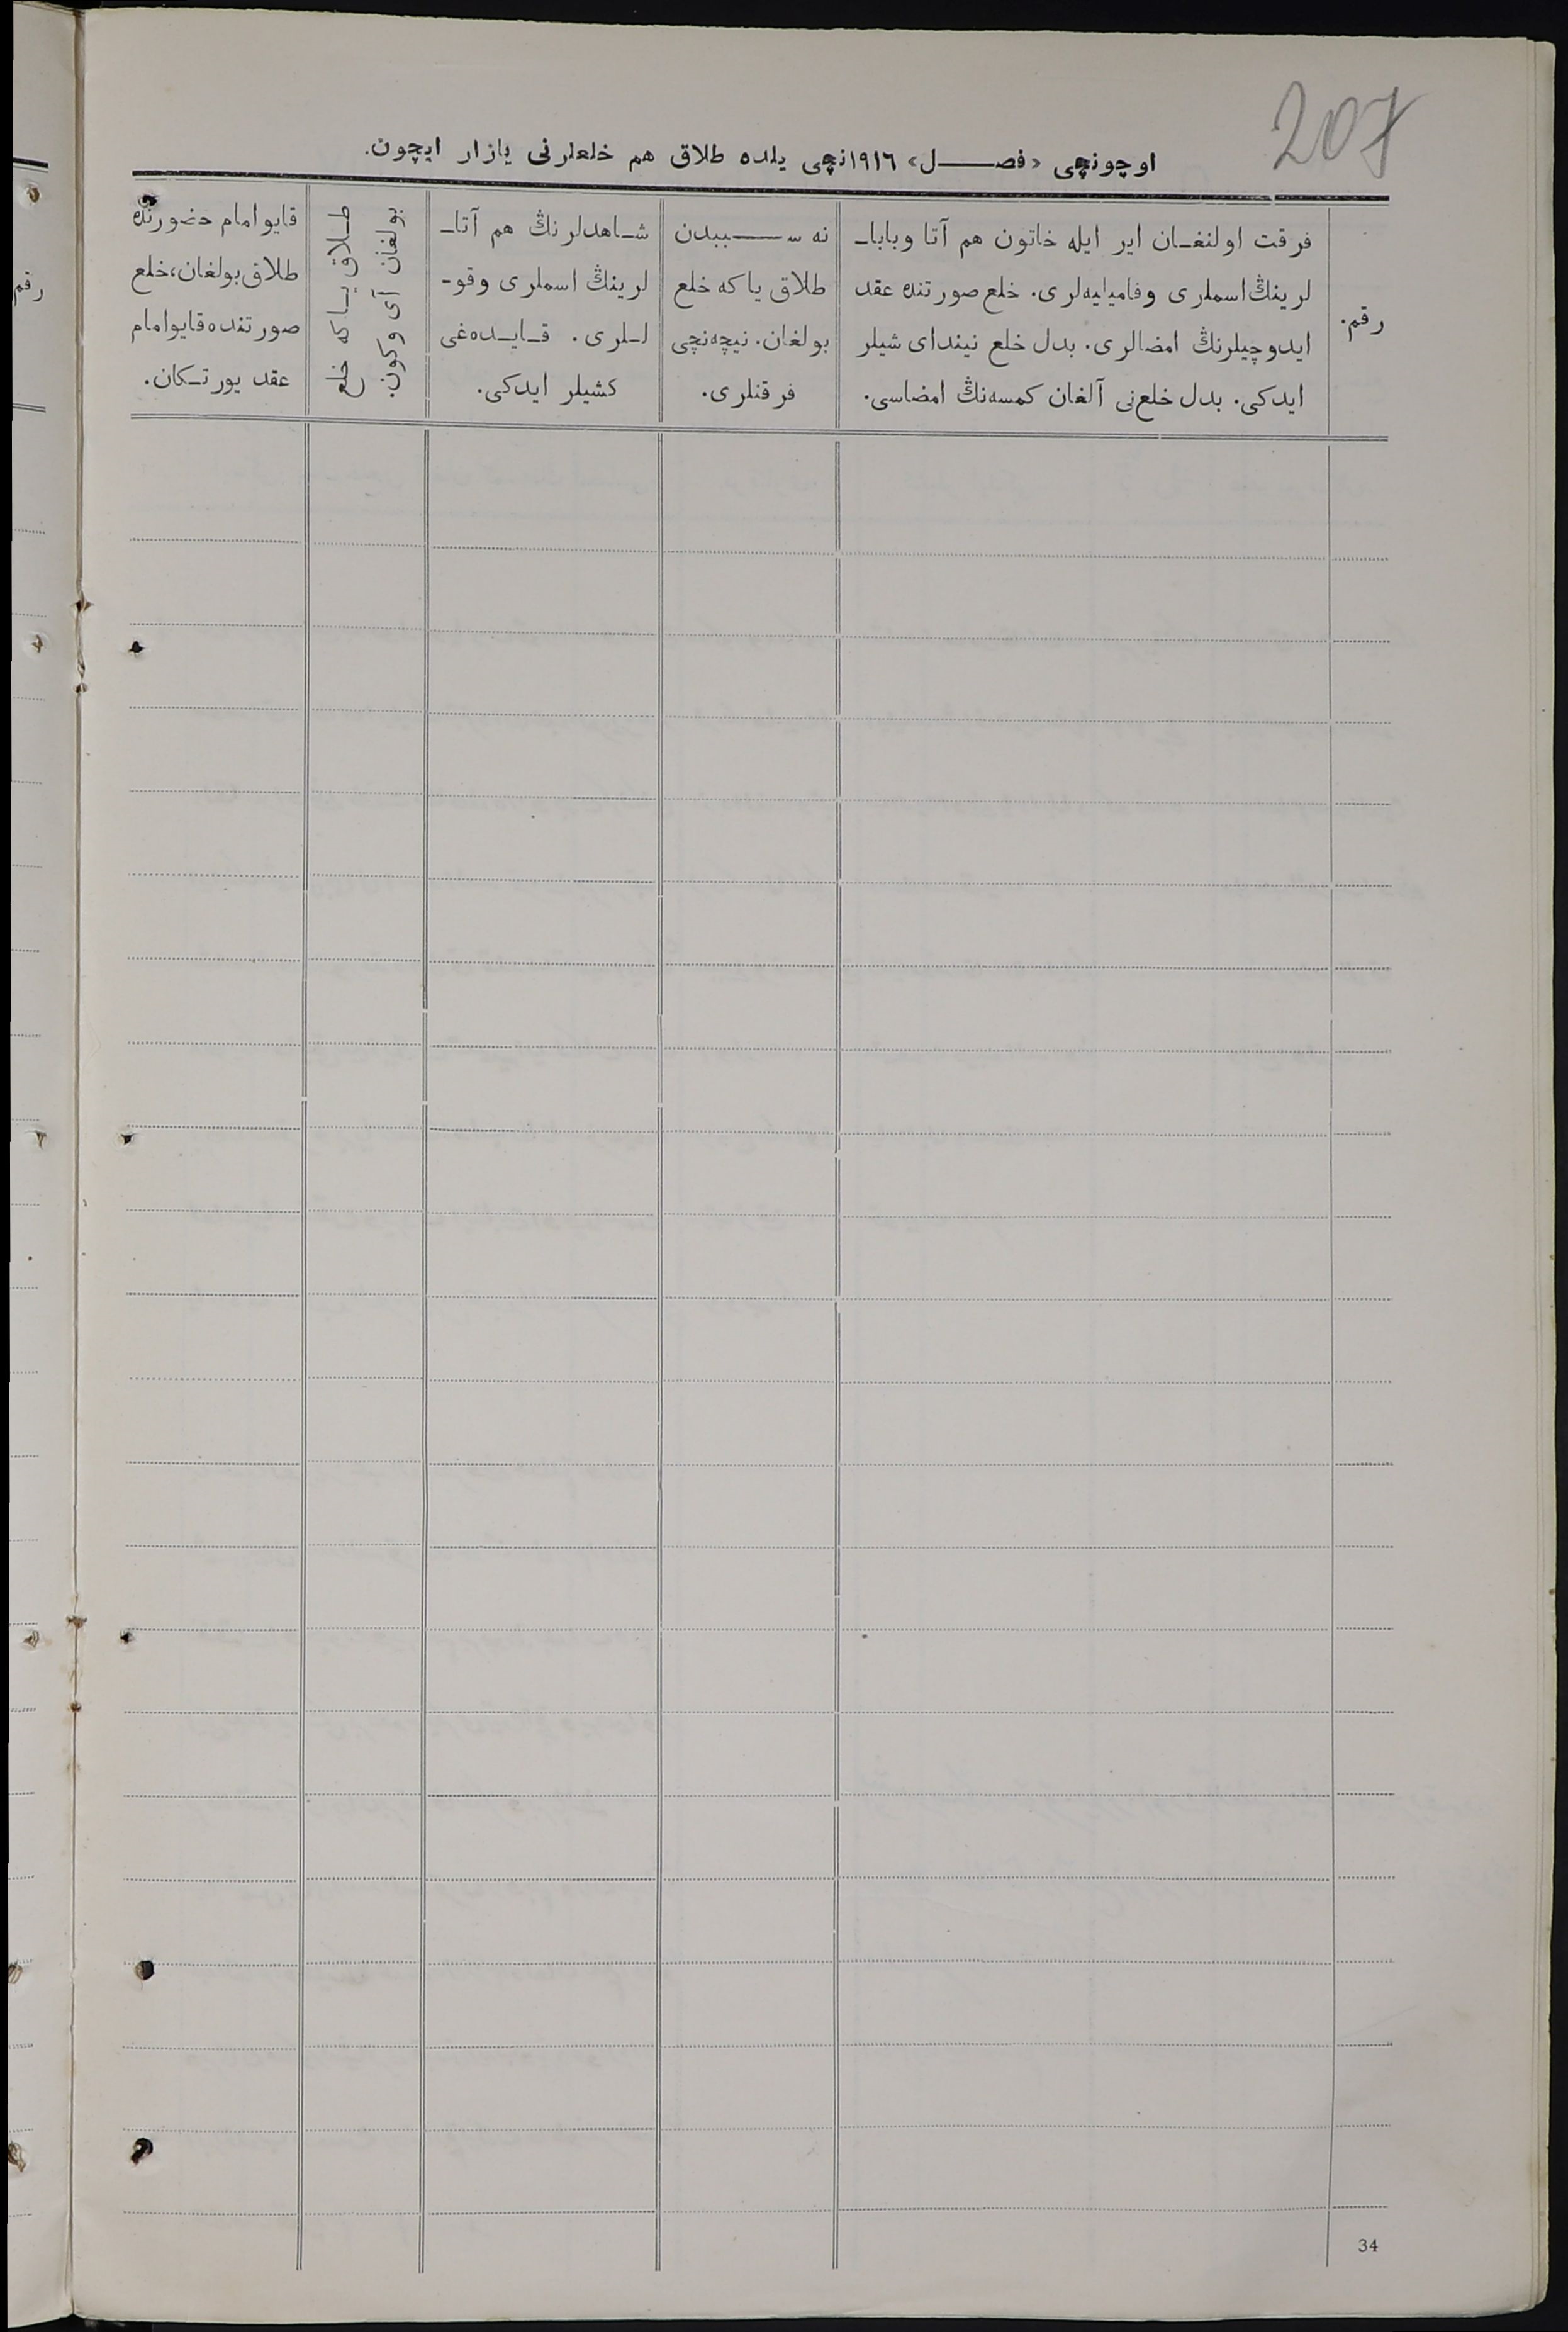 207
اوچونچی «فصـــل» ١٩١٦نچی يلده طلاق هم خلعلرنی يازار ايچون.
رقم.
فرقت اولنغـان اير ايله خاتون هم آتا وباباـ
لرينڭ اسملری وفاميليه‌لری. خلع صورتنده عقد
ايدوچيلرنڭ امضالری. بدل خلع نيندای شيلر
ايدكی. بدل خلع‌نی آلغان كمسه‌نڭ امضاسی.
نه ســـببدن
طلاق ياكه خلع
بولغان. نيچه‌نچی
فرقتلری.
شـاهدلرنڭ هم آتاـ
لرينڭ اسملری وقوـ
لـلری. قـايـده‌غی
كشيلر ايدكی.
طـلاق يـاكه خلع
بولغان آی وكون.
قايو امام حضورنده
طلاق بولغان، خلع
صورتنده قايو امام
عقد يورتـكان.
34
رقم